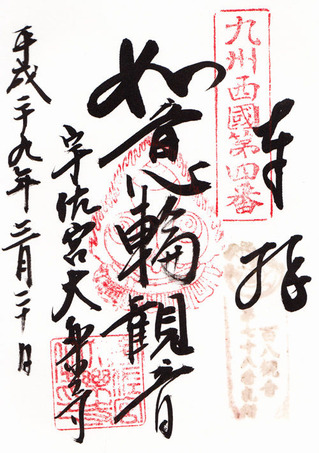 九州西國第四番
奉拝
如意輪観音
宇佐宮大楽寺
平成二十九年三月二十日